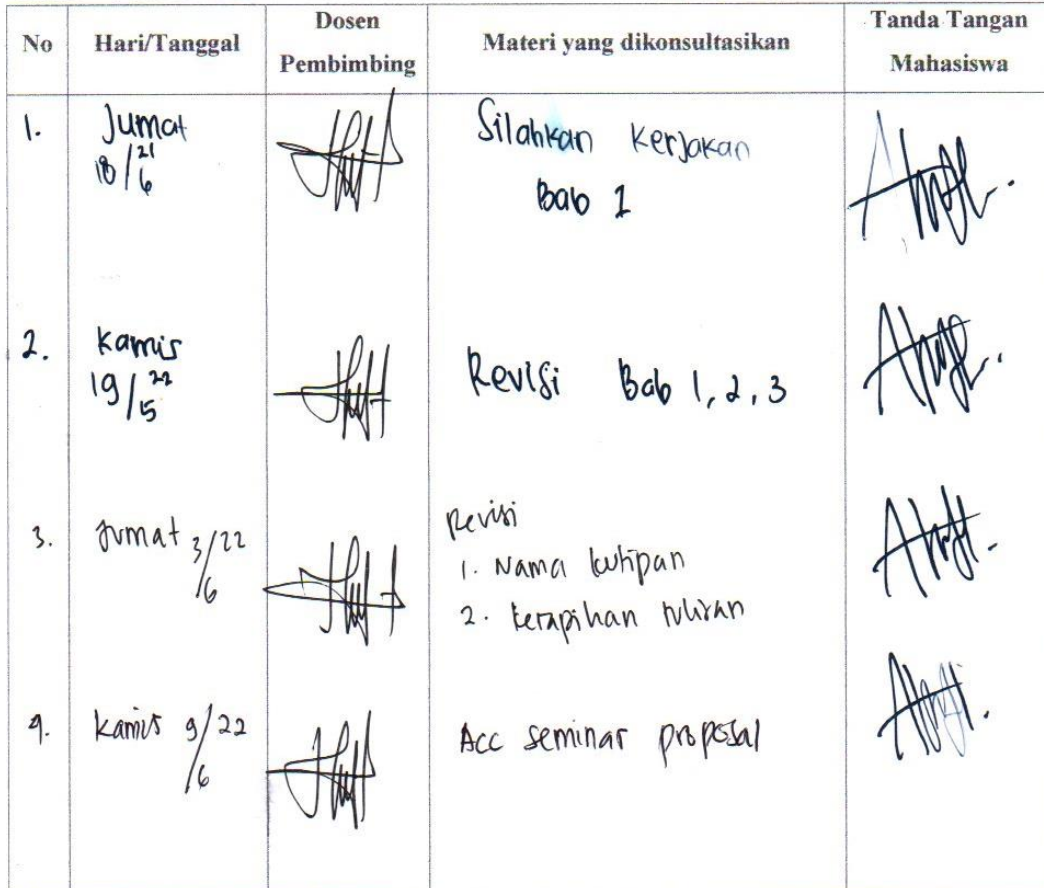 No Hari/Tanggal Dosen Pembimbing Materi yang dikonsultasikan Tanda Tangan Mahasiswa
1. Jumat 18/6 21 Silahkan Kerjakan
Bab 1
2. Kamis 19/5 22 Revisi Bab 1, 2, 3
3. Jumat 3/6 22 Revisi
1. Nama kutipan
2. kerapihan tulisan
4. Kamis 9/6 22 Acc seminar proposal